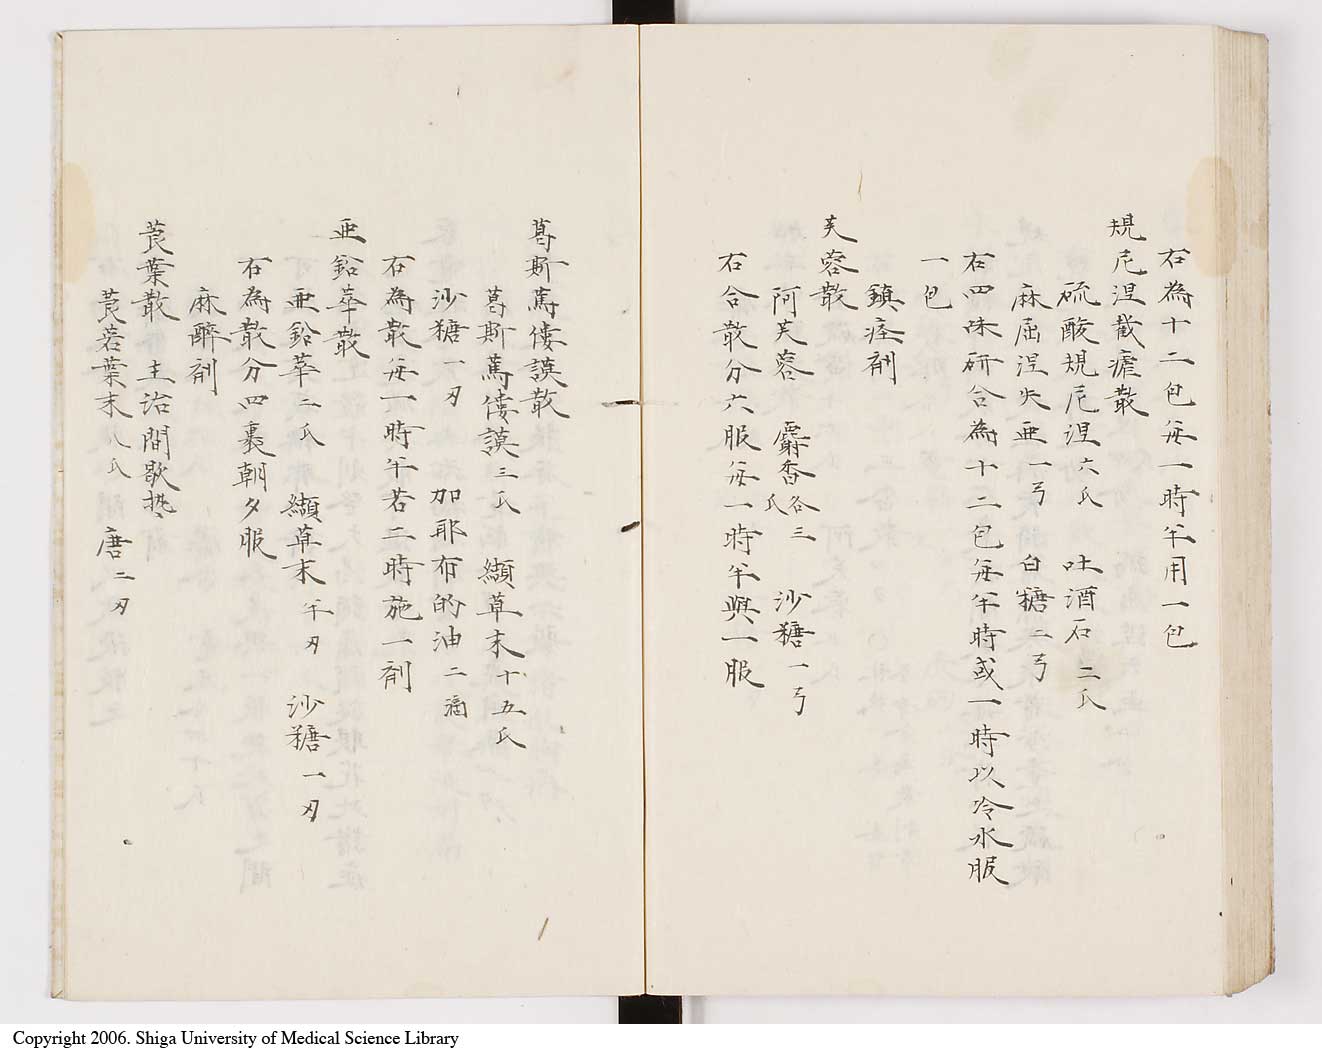 右為十二包每一時半用一包
規尼涅截瘧散
硫酸規尼涅六氏　吐酒石二氏
麻屈涅失亜一弓　白糖二弓
右四味研合為十二包每半時或一時以冷水服
一包
鎮痙剤
芙蓉散
阿芙蓉　麝香各三氏　沙糖一弓
右合散分六服每一時半與一服
葛斯篤僂謨散
葛斯篤僂謨三氏　纈草末十五氏
沙糖一刃　加耶布的油二滴
右為散每一時半若二時施一剤
亜鉛華散
亜鉛華二氏　纈草末半刃　沙糖一刃
右為散分四裹朝夕服
麻酔剤
莨葉散　主治間歇熱
莨菪葉末八氏　唐二刃
Copyright 2006. Shiga University of Medical Science Library